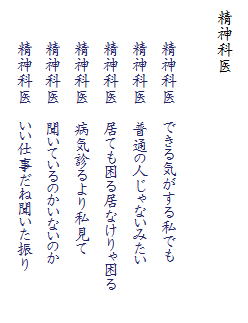 精神科医
精神科医 できる気がする私でも
精神科医 普通の人じゃないみたい
精神科医 居ても困る居なけりゃ困る
精神科医 病気診るより私見て
精神科医 聞いているのかいないのか
精神科医 いい仕事だね聞いた振り